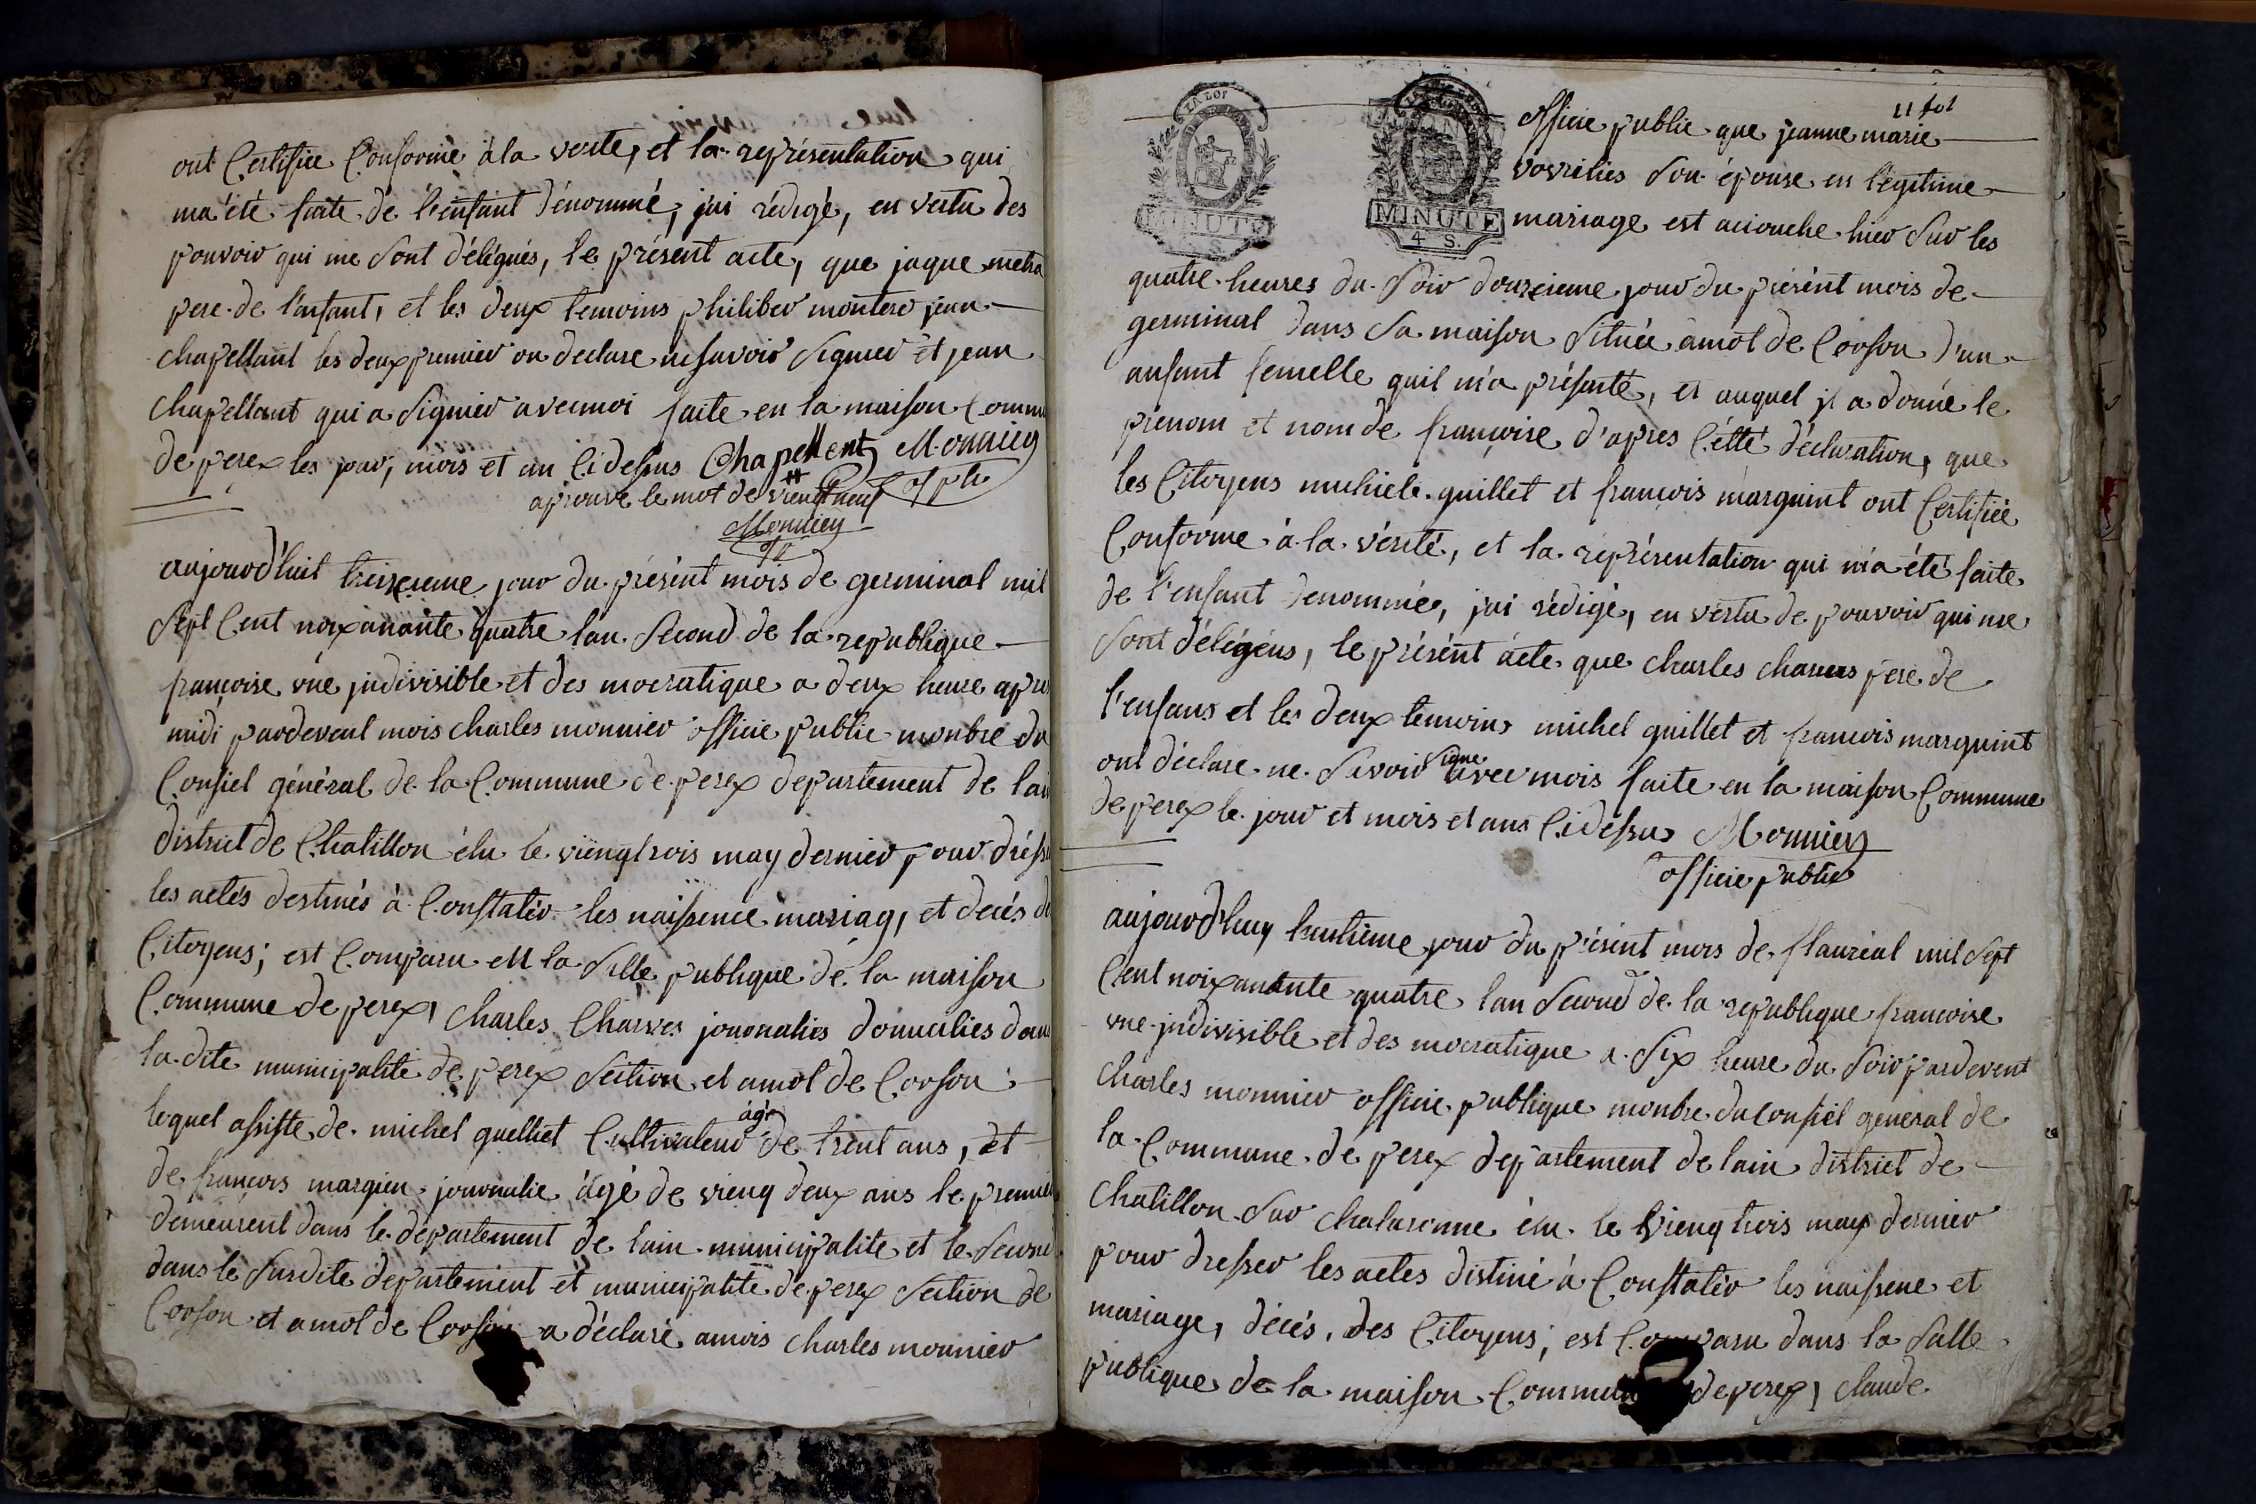 ont Certifiee Conforme à la verite, et la représentation qui
ma été faite de l'enfant dénommé, jai rédigé, en vertu des
pouvoir qui me sont délégués, le présent acte, que jaque metra
pere de l'enfant, et les deux temoins philiber montere jean
chapellant les deux premier on declare ne savoir signier et jean
chapellant qui a signier avec moi faite en la maison Commu
de perex les jour, mois et an Cidessus Chapellent Monnier
aprouve le mot de viengt neuf
Monnier
aujourd'huit treizieme jour du présent mois de germinal mil
sept Cent noixanante quatre lan second de la republique
françoise vne jndivisible et des mocratique a deux heure apres
midi pardevent mois charles monnier officie public monbre du
Consiel général de la Commune de perex departement de lain
district de Chatillon élu le viengtrois may dernier pour dresse
les actes destinés à Constatér les naissence mariag, et decés de
Citoyens; est Comparu en la salle publique de la maison
Commune de perex, Charles Charves journalies domicilies dans
la dite municipalité de perex section et amol de Corson
lequel assiste de michel quelliet Cultivateur agé de trent ans, et
de françois marqien journalie âgé de vienq deux ans le premier
demeurent dans le département de lain municipalite et le second
dans le surdite departement et municipalite de perex section de
Corson et amol de Corson a déclaré amois charles monnier
LA LOI
MINUTE
4 S.
11 fol
officie public que jeanne marie
vovrilies son épouse en légitime
mariage est aciouche hier sur les
quatre heures du soir douzieme jour du présent mois de
germinal dans sa maison située amol de Corson d'un
anfant femelle quil m'a présanté, et auquel jl a donné le
prenom et nom de françoise d'apres Cétté déclaration, que
les Citoyens michiele guillet et françois marguint ont Certifiée
Conforme à la vérité, et la représentation qui m'a été faite
de l'enfant denommée, jai rédigé, en vértu de pouvoir qui me
sont délégéus, le présént acte que charles charves pere de
l'enfans et les deux temoins michel guillet et francois marguint
ont déclare ne savoir signe avec mois faite en la maison Commune
de perex le jour et mois et ans Cidessus Monnier
officie public
aujourd'huy hentieme jour du présint mois de flauréal mil sept
Cent noixanante quatre lan second de la republique francoise
vne jndivisible et des mocratique a six heure du soir pardevent
charles monnier officie publique monbre du Consiél général de
la Commune de perex departement de lain district de
chatillon sur chalaronne élu le vienq trois may dernier
pour dresser les actes distiné à Constatér les naissene et
mariage, décés, des Citoyens; est Comparu dans la salle
publique de la maison Commune de perex, claude